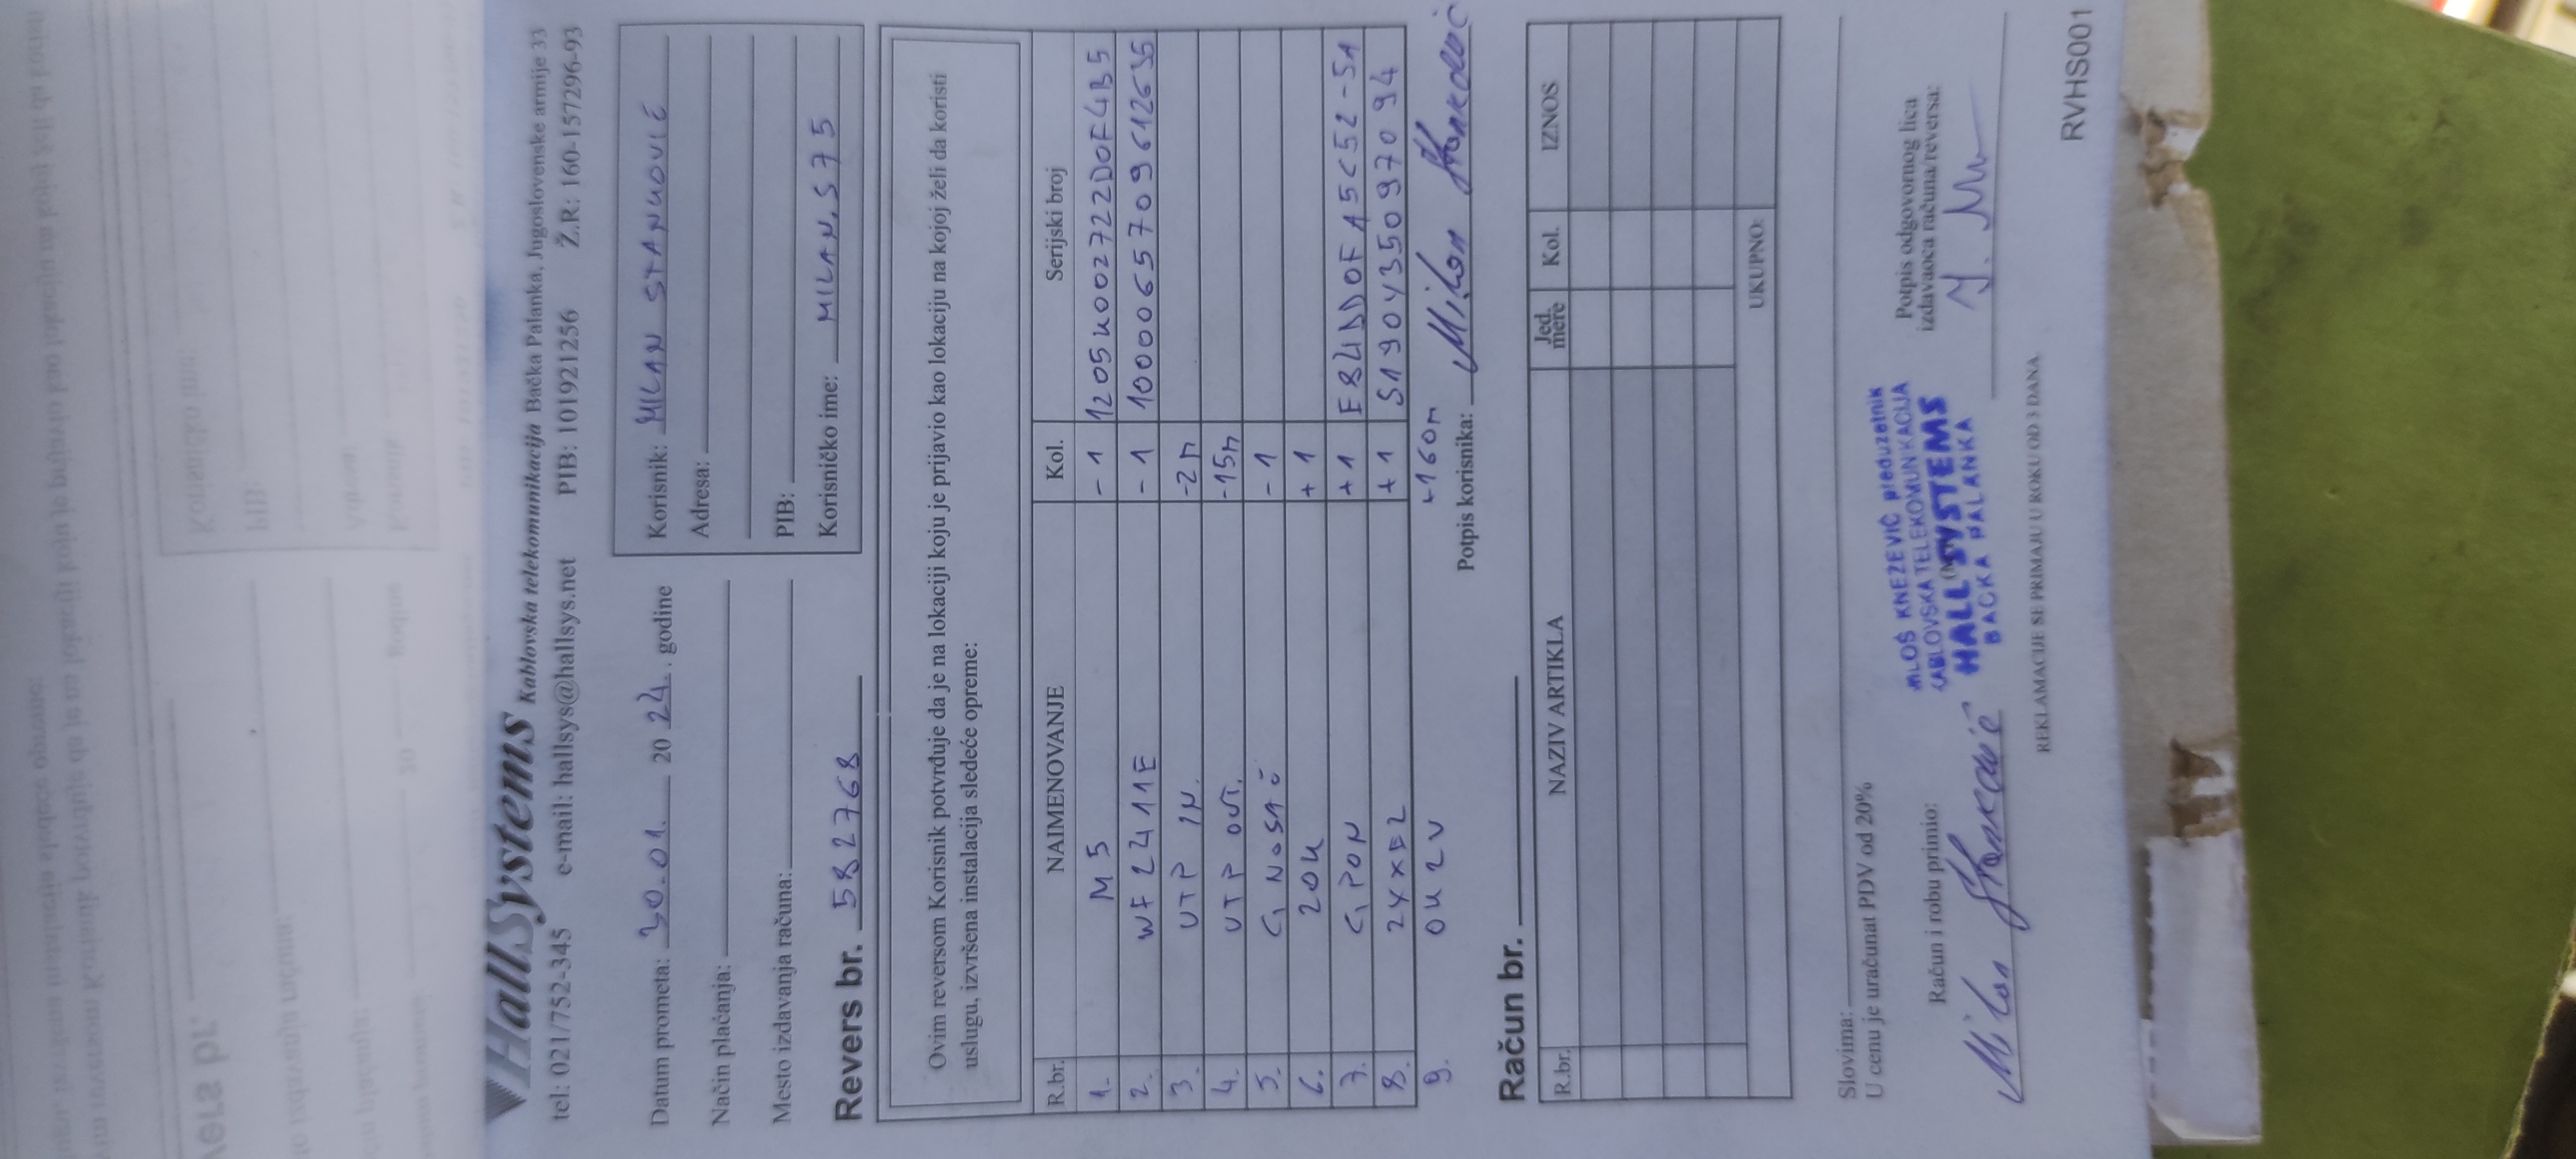 HallSystems Kablovska telekomunikacija Bačka Palanka, Jugoslovenske armije 33
tel: 021/752-345 e-mail: hallsys@hallsys.net PIB: 101921256 Ž.R: 160-157296-93
Datum prometa: 30.01. 20 24. godine
Način plaćanja:
Mesto izdavanja računa:
Revers br. 582768
Korisnik: MILAN STANKOVIĆ
Adresa:
PIB:
Korisničko ime: MILAN.S75
Ovim reversom Korisnik potvrđuje da je na lokaciji koju je prijavio kao lokaciju na kojoj želi da koristi
uslugu, izvršena instalacija sledeće opreme:
R.br. NAIMENOVANJE Kol. Serijski broj
1. M5 -1 1205K002722D0F4B5
2. WF2411E -1
3. UTP IN. -2m
4. UTP OUT. -15m
5. G NOSAČ -1
6. ZOK +1
7. GPON +1
8. +1 S190Y35097094
9. OK2V +160m
Potpis korisnika: Milan Stanković
Račun br.
R.br. NAZIV ARTIKLA Jed. mere Kol. IZNOS
UKUPNO:
Slovima:
U cenu je uračunat PDV od 20%
Račun i robu primio:
Milan Stanković
MILOŠ KNEŽEVIĆ preduzetnik
KABLOVSKA TELEKOMUNIKACIJA
HALL SYSTEMS
BAČKA PALANKA
Potpis odgovornog lica
izdavaoca računa/reversa:
REKLAMACIJE SE PRIMAJU U ROKU OD 3 DANA
RVHS001